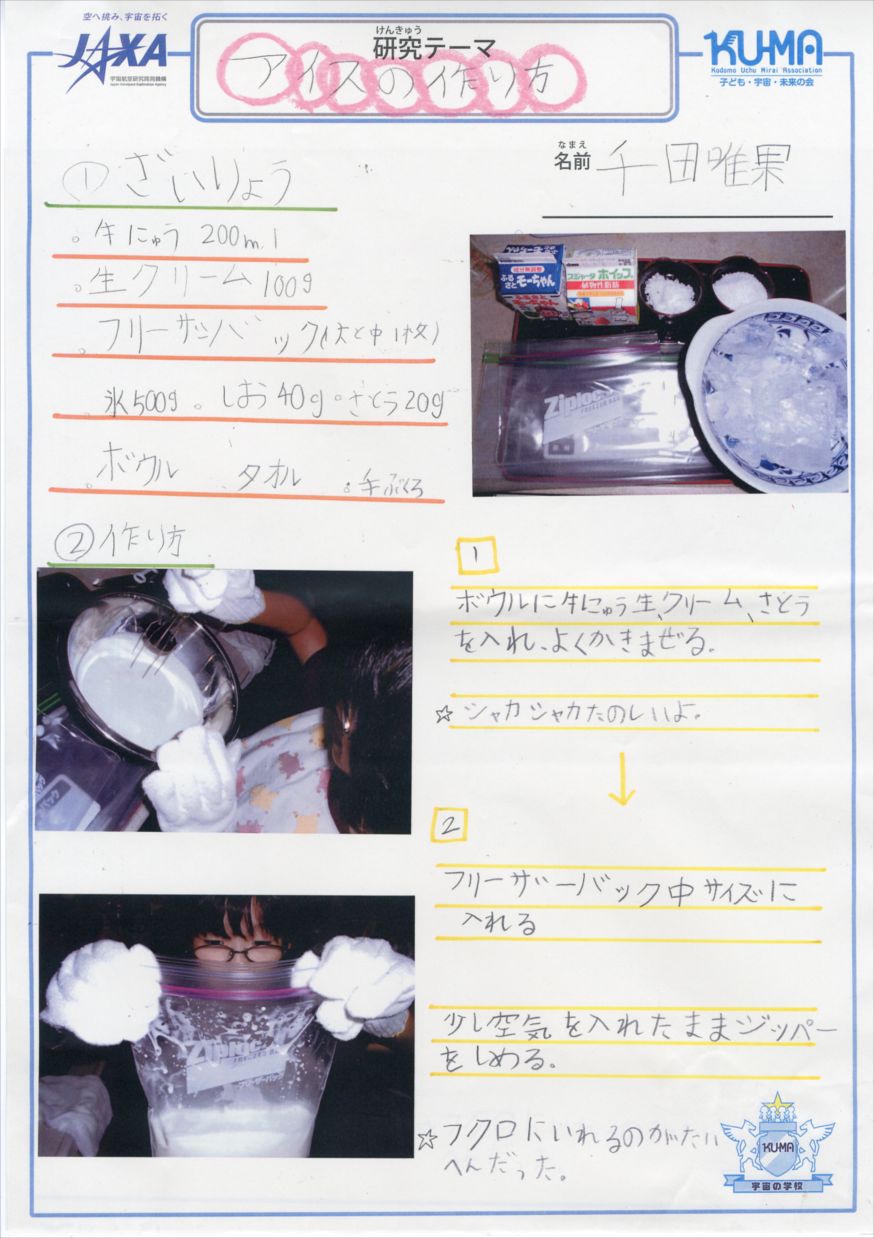 空へ挑み、宇宙を拓く
JAXA
宇宙航空研究開発機構
Japan Aerospace Exploration Agency
けんきゅう
研究テーマ
アイスの作り方
KU-MA
Kodomo Uchu Mirai Association
子ども・宇宙・未来の会
なまえ
名前 千田唯果
① ざいりょう
。牛にゅう 200ml
。生クリーム 100g
。フリーザーバック(大と中1枚)
氷500g 。しお40g 。さとう20g
。ボウル 。タオル 。手ぶくろ
成分無調整
ふるさと
モーちゃん
スジャータ ホイップ
植物性脂肪
Ziploc
FREEZER BAG
②作り方
1
ボウルに牛にゅう、生クリーム、さとう
を入れ、よくかきまぜる。
☆シャカシャカたのしいよ。
2
フリーザーバック中サイズに
入れる
少し空気を入れたままジッパー
をしめる。
☆フクロにいれるのがたい
へんだった。
Ziploc
フリーザーバッグ
KU-MA
宇宙の学校